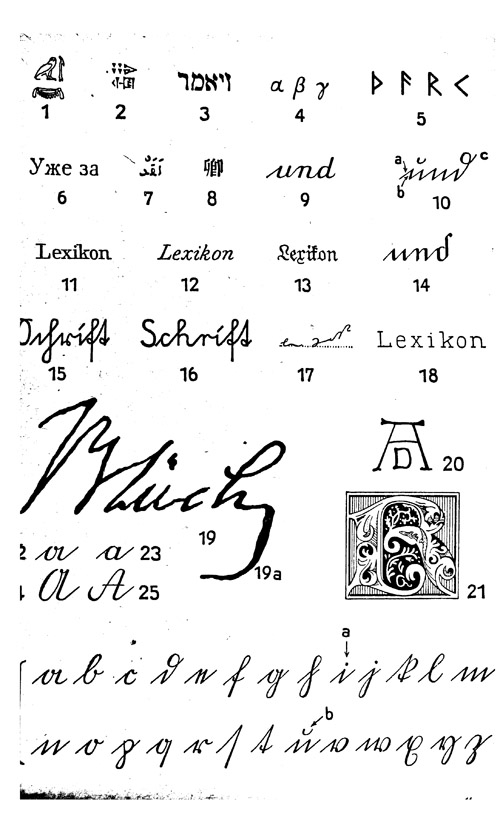 ויאמר α β γ ᚦ ᚨ ᚱ ᚲ
1 2 3 4 5
Уже за und a und c
b
6 7 8 9 10
Lexikon Lexikon Lexikon und
11 12 13 14
Schrift Schrift Lexikon
15 16 17 18
Blüch
AD 20
19
19a
2 a a 23
A A 25
21
a
a b c d e f g h i j k l m
b
n o p q r s t ü v w x y z